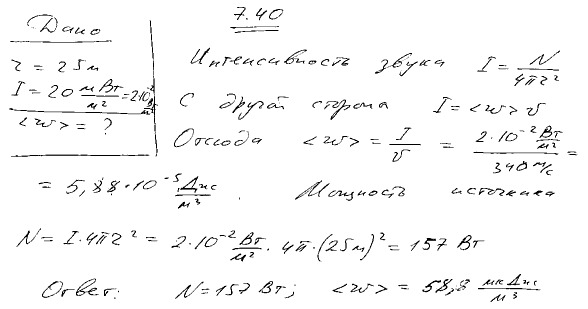 7.40
Дано
r = 25 м
I = 20 мВт/м² = 2·10⁻² Вт/м²
<w> = ?
Интенсивность звука I = N/4πr²
С другой сторона I = <w> v
Отсюда <w> = I/v = 2·10⁻² Вт/м² / 340 м/с =
= 5,88·10⁻⁵ Дж/м³. Мощность источника
N = I·4πr² = 2·10⁻² Вт/м² · 4π·(25м)² = 157 Вт
Ответ: N = 157 Вт; <w> = 58,8 мкДж/м³